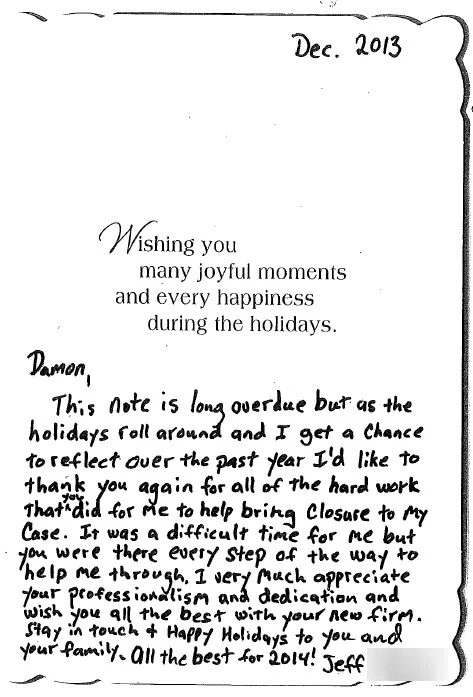 Dec. 2013
Wishing you
many joyful moments
and every happiness
during the holidays.
Damon,
This note is long overdue but as the
holidays roll around and I get a chance
to reflect over the past year I'd like to
thank you again for all of the hard work
that you did for me to help bring closure to my
case. It was a difficult time for me but
you were there every step of the way to
help me through. I very much appreciate
your professionalism and dedication and
wish you all the best with your new firm.
Stay in touch + Happy Holidays to you and
your family. All the best for 2014! Jeff